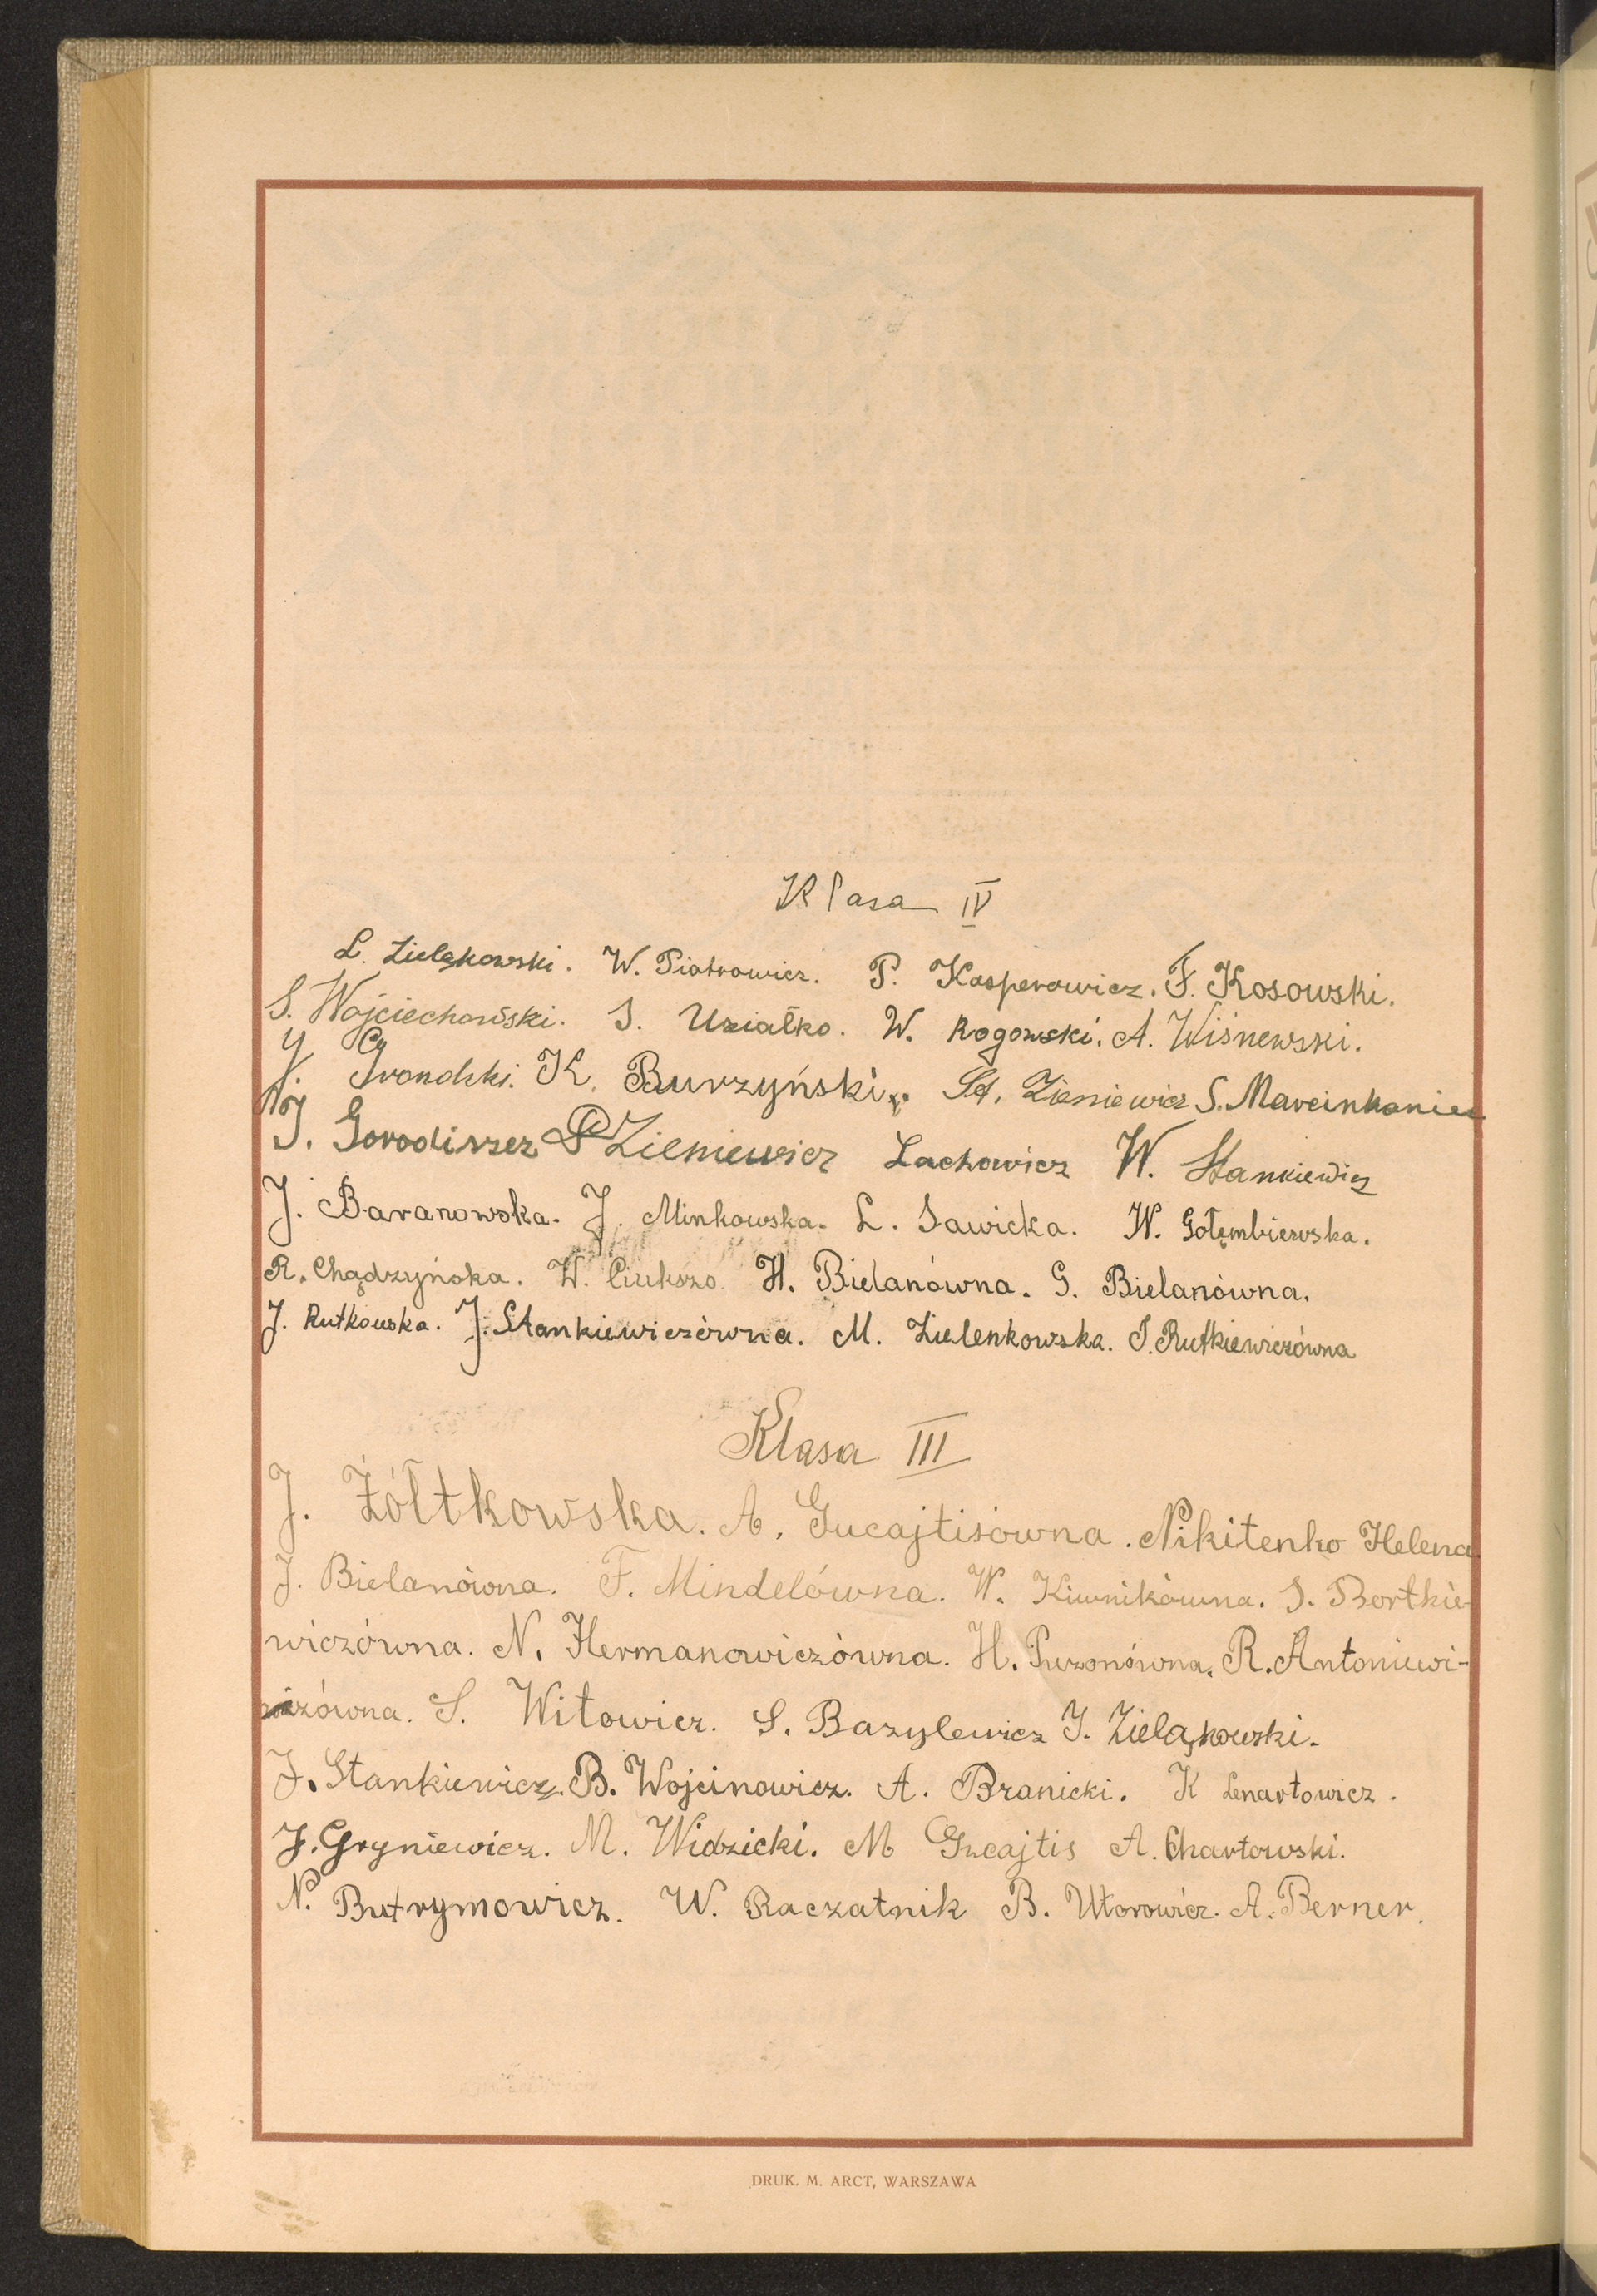 Klasa IV
L. Zielękowski. W. Piotrowicz. P. Kasperowicz. F. Kosowski.
S. Wojciechowski. S. Uziałko. W. Rogowski. A. Wiśnewski.
J. Grondzki. K. Burzyński. St. Zieniewicz S. Marcinkaniec
J. Gorodiszez P Zieniewicz Lachowicz W. Stankiewicz
J. Baranowska. J. Minkowska. L. Sawicka. W. Gołęmbiewska.
R. Chądzyńska. W. H. Bielanówna. G. Bielanówna.
J. Rutkowska. J. Stankiewiczówna. M. Zielenkowska. J. Rutkiewiczówna
Klasa III
J. Żółtkowska. A. Gucajtisówna. Nikitenko Helena
J. Bielanówna. F. Mindelówna. W. Kiwnikówna. S. Bortkie-
wiczówna. N. Hermanowiczówna. H. Puzonówna. R. Antoniewi-
czówna. S. Witowicz. S. Bazylewicz J. Zieląkowski.
J. Stankiewicz. B. Wojcinowicz. A. Branicki. K Lenartowicz.
J. Gryniewicz. M. Widzicki. M Gucajtis A. Chartowski.
N. Butrymowicz. W. Raczatnik B. Utorowicz. A. Berner.
DRUK. M. ARCT, WARSZAWA